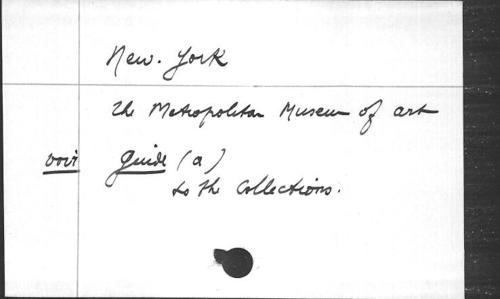 New. York
The Metropolitan Museum of art
voir Guide (a)
to the Collections.